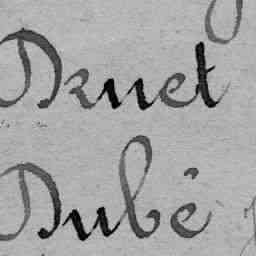 Druet
Dubé